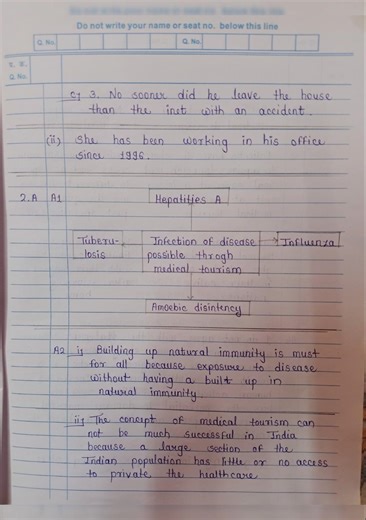 Do not write your name or seat no. below this line
Q. No. Q. No.
Q. No.
c) 3. No sooner did he leave the house
than the inet with an accident.
(ii) She has been working in his office
since 1996.
2.A A1 Hepatities A
Tuberu- Infection of disease Influenza
losis possible throgh
medical tourism
Amoebic disintency
A2 i) Building up natural immunity is must
for all because exposure to disease
without having a built up in
natural immunity.
ii) The concept of medical tourism can
not be much successful in India
because a large section of the
Indian population has little or no access
to private the healthcare